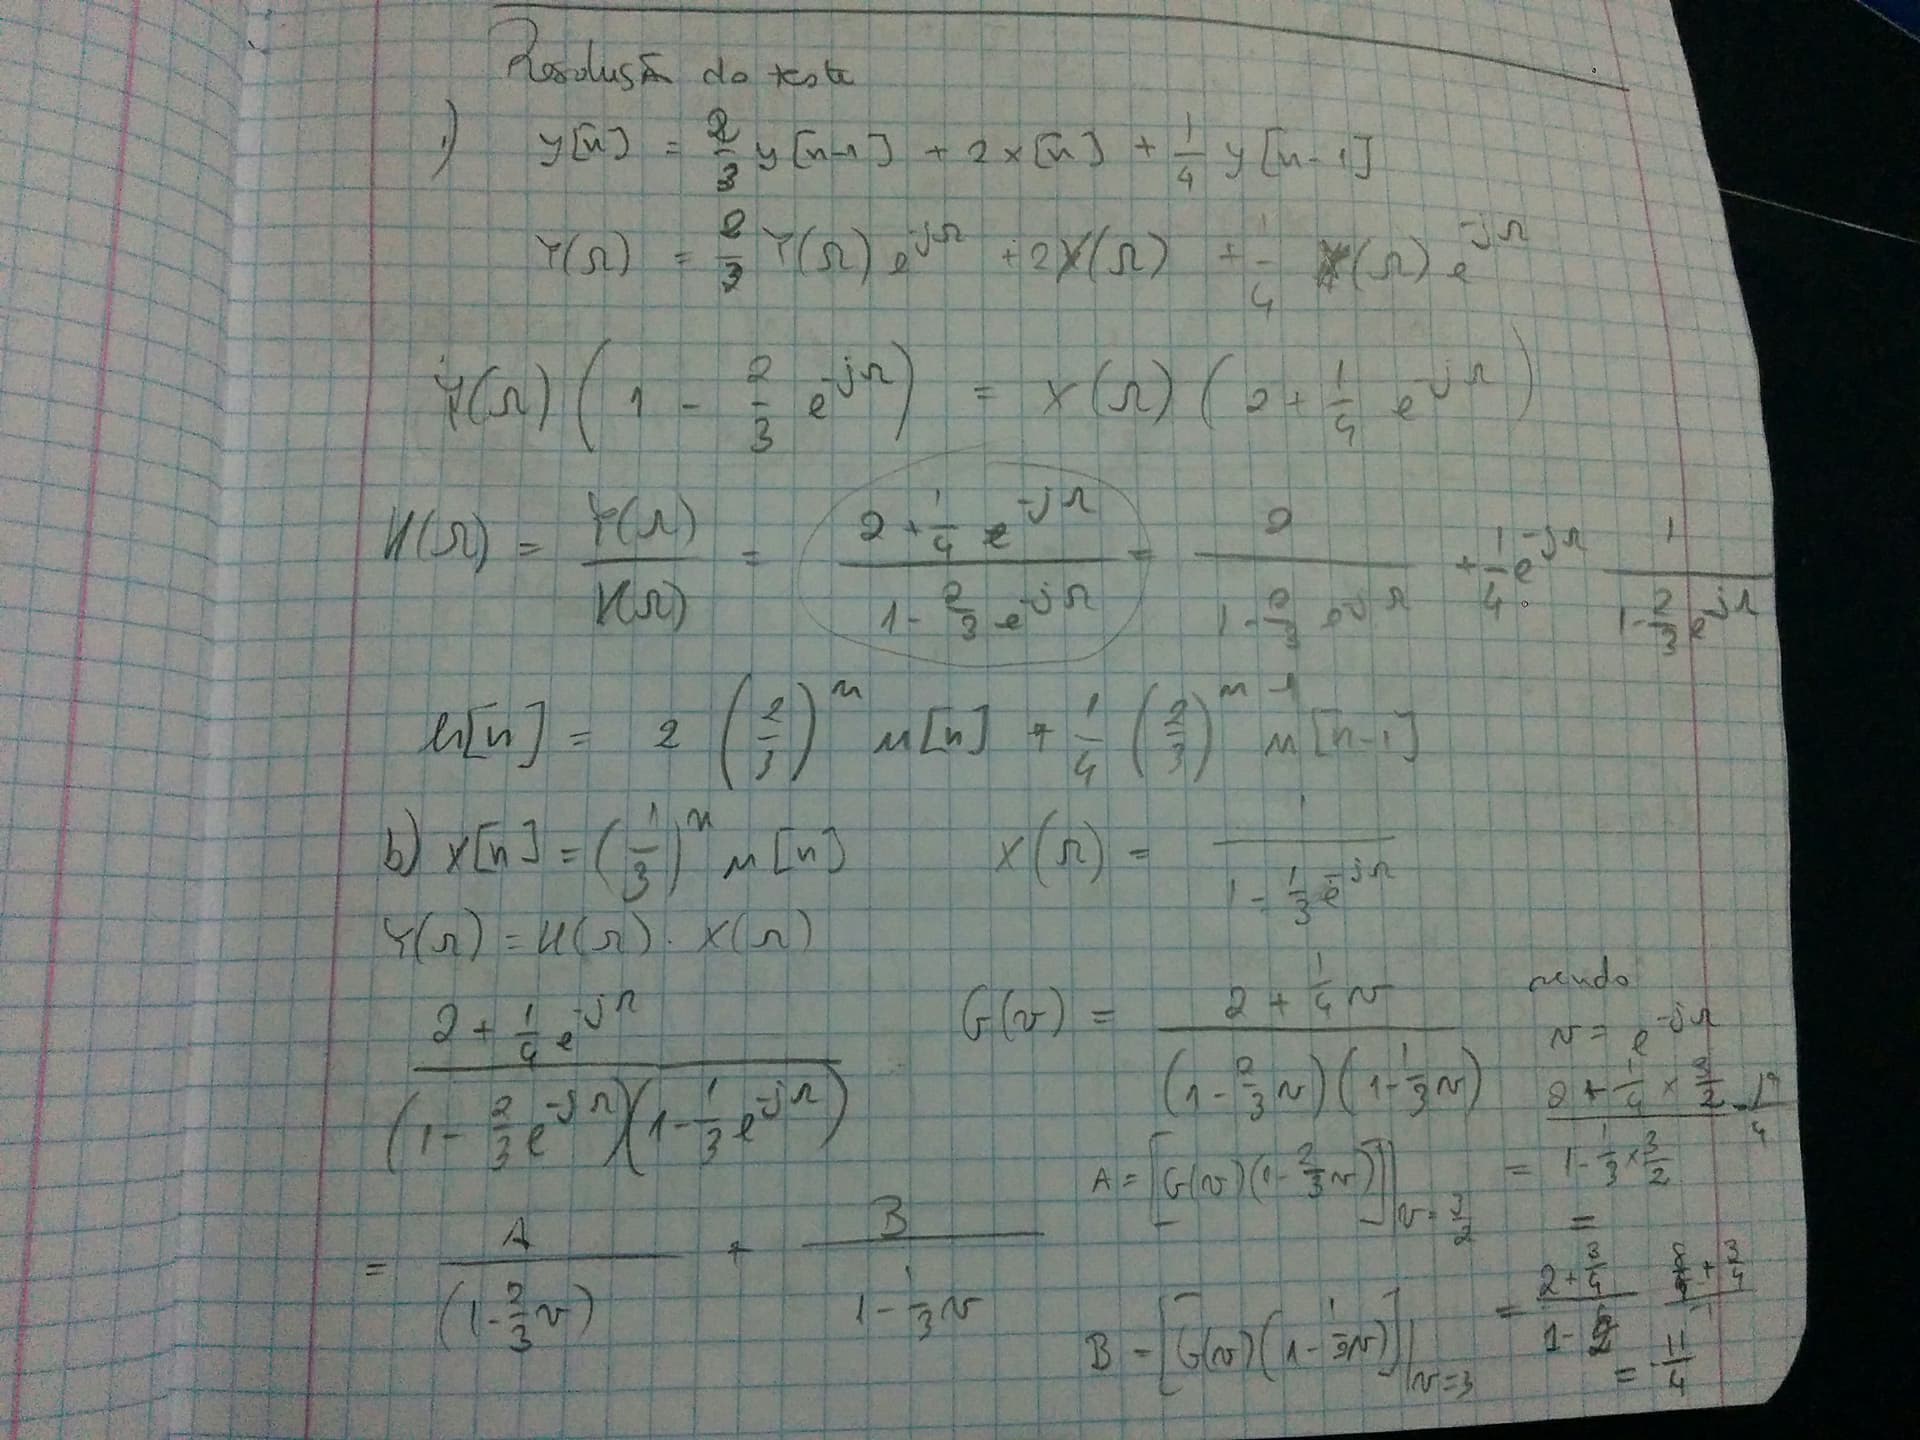 Resolução do teste
1) y[n] = 2/3 y[n-1] + 2x[n] + 1/4 y[n-1]
Y(Ω) = 2/3 Y(Ω) e^-jΩ + 2X(Ω) + 1/4 X(Ω) e^-jΩ
Y(Ω) (1 - 2/3 e^-jΩ) = X(Ω) (2 + 1/4 e^-jΩ)
H(Ω) = Y(Ω)/X(Ω) = (2 + 1/4 e^-jΩ)/(1 - 2/3 e^-jΩ) = 2/(1 - 2/3 e^-jΩ) + 1/4 e^-jΩ 1/(1 - 2/3 e^-jΩ)
h[n] = 2 (2/3)^n u[n] + 1/4 (2/3)^n-1 u[n-1]
b) x[n] = (1/3)^n u[n] X(Ω) = 1/(1 - 1/3 e^-jΩ)
Y(Ω) = H(Ω) . X(Ω)
(2 + 1/4 e^-jΩ)/((1 - 2/3 e^-jΩ)(1 - 1/3 e^-jΩ)) G(v) = (2 + 1/4 v)/((1 - 2/3 v)(1 - 1/3 v)) sendo
v = e^-jΩ
= A/(1 - 2/3 v) + B/(1 - 1/3 v)
A = [G(v)(1 - 2/3 v)]|v = 3/2 = (2 + 1/4 × 3/2)/(1 - 1/3 × 3/2) = 19/4
B = [G(v)(1 - 1/3 v)]|v=3 = (2 + 3/4)/(1 - 2) = (8/4 + 3/4)/ = -11/4